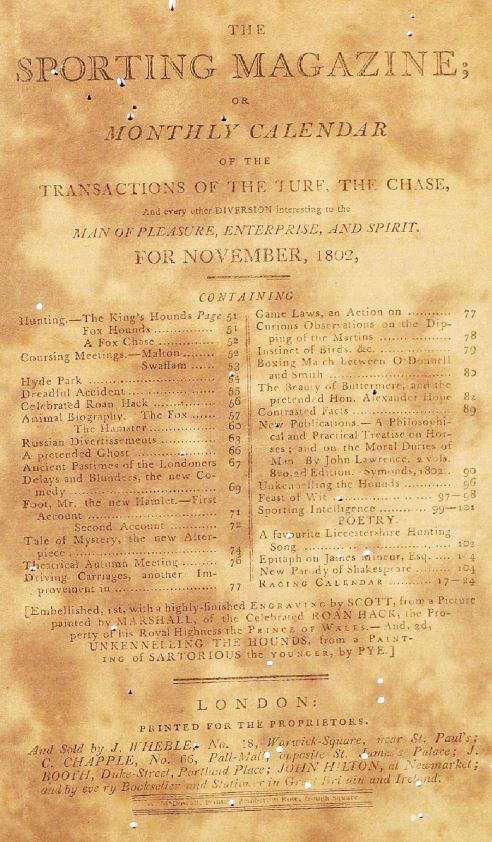 THE
SPORTING MAGAZINE;
OR
MONTHLY CALENDAR
OF THE
TRANSACTIONS OF THE TURF, THE CHASE,
And every other DIVERSION interesting to the
MAN OF PLEASURE, ENTERPRISE, AND SPIRIT.
FOR NOVEMBER, 1802,
CONTAINING
Hunting.—The King's Hounds Page 51
Fox Hounds ............... 51
A Fox Chase ............... 52
Coursing Meetings.—Malton ........ 52
Swaffam ...... 53
Hyde Park ........................ 54
Dreadful Accident ................ 55
Celebrated Roan Hack ............. 56
Animal Biography. The Fox ...... 57
The Hamster ............ 60
Russian Divertissements ........... 63
A pretended Ghost ................ 66
Ancient Pastimes of the Londoners 67
Delays and Blunders, the new Co-
medy ........................ 69
Foot, Mr. the new Hamlet.—First
Account ................ 71
Second Account ........ 72
Tale of Mystery, the new After-
piece ........................ 74
Theatrical Autumn Meeting ....... 76
Driving Carriages, another Im-
provement in .................. 77
Game Laws, an Action on .......... 77
Curious Observations on the Dip-
ping of the Martins ............ 78
Instinct of Birds, &c. ............ 79
Boxing Match between O'Donnell
and Smith .................... 80
The Beauty of Buttermere, and the
pretended Hon. Alexander Hope 82
Contrasted Facts ................. 89
New Publications.—A Philosophi-
cal and Practical Treatise on Hor-
ses; and on the Moral Duties of
Man. By John Lawrence, 2 vols.
8vo. 2d Edition. Symonds, 1802.. 90
Unkennelling the Hounds ......... 96
Feast of Wit ................. 97—98
Sporting Intelligence ........ 99—101
POETRY.
A favourite Liecestershire Hunting
Song ........................ 102
Epitaph on James Mineur, Esq. ... 104
New Parody of Shakespeare ....... 104
RACING CALENDAR ........... 17—24
[Embellished, 1st, with a highly-finished ENGRAVING by SCOTT, from a Picture
painted by MARSHALL, of the Celebrated ROAN HACK, the Pro-
perty of his Royal Highness the PRINCE OF WALES.—And, 2d,
UNKENNELLING THE HOUNDS, from a PAINT-
ING of SARTORIOUS the YOUNGER, by PYE.]
LONDON:
PRINTED FOR THE PROPRIETORS.
And Sold by J. WHEBLE, No. 18, Warwick-Square, near St. Paul's;
C. CHAPPLE, No. 66, Pall-Mall, opposite St. James's Palace; J.
BOOTH, Duke-Street, Portland Place; JOHN HILTON, at Newmarket;
and by every Bookseller and Stationer in Great Britain and Ireland.